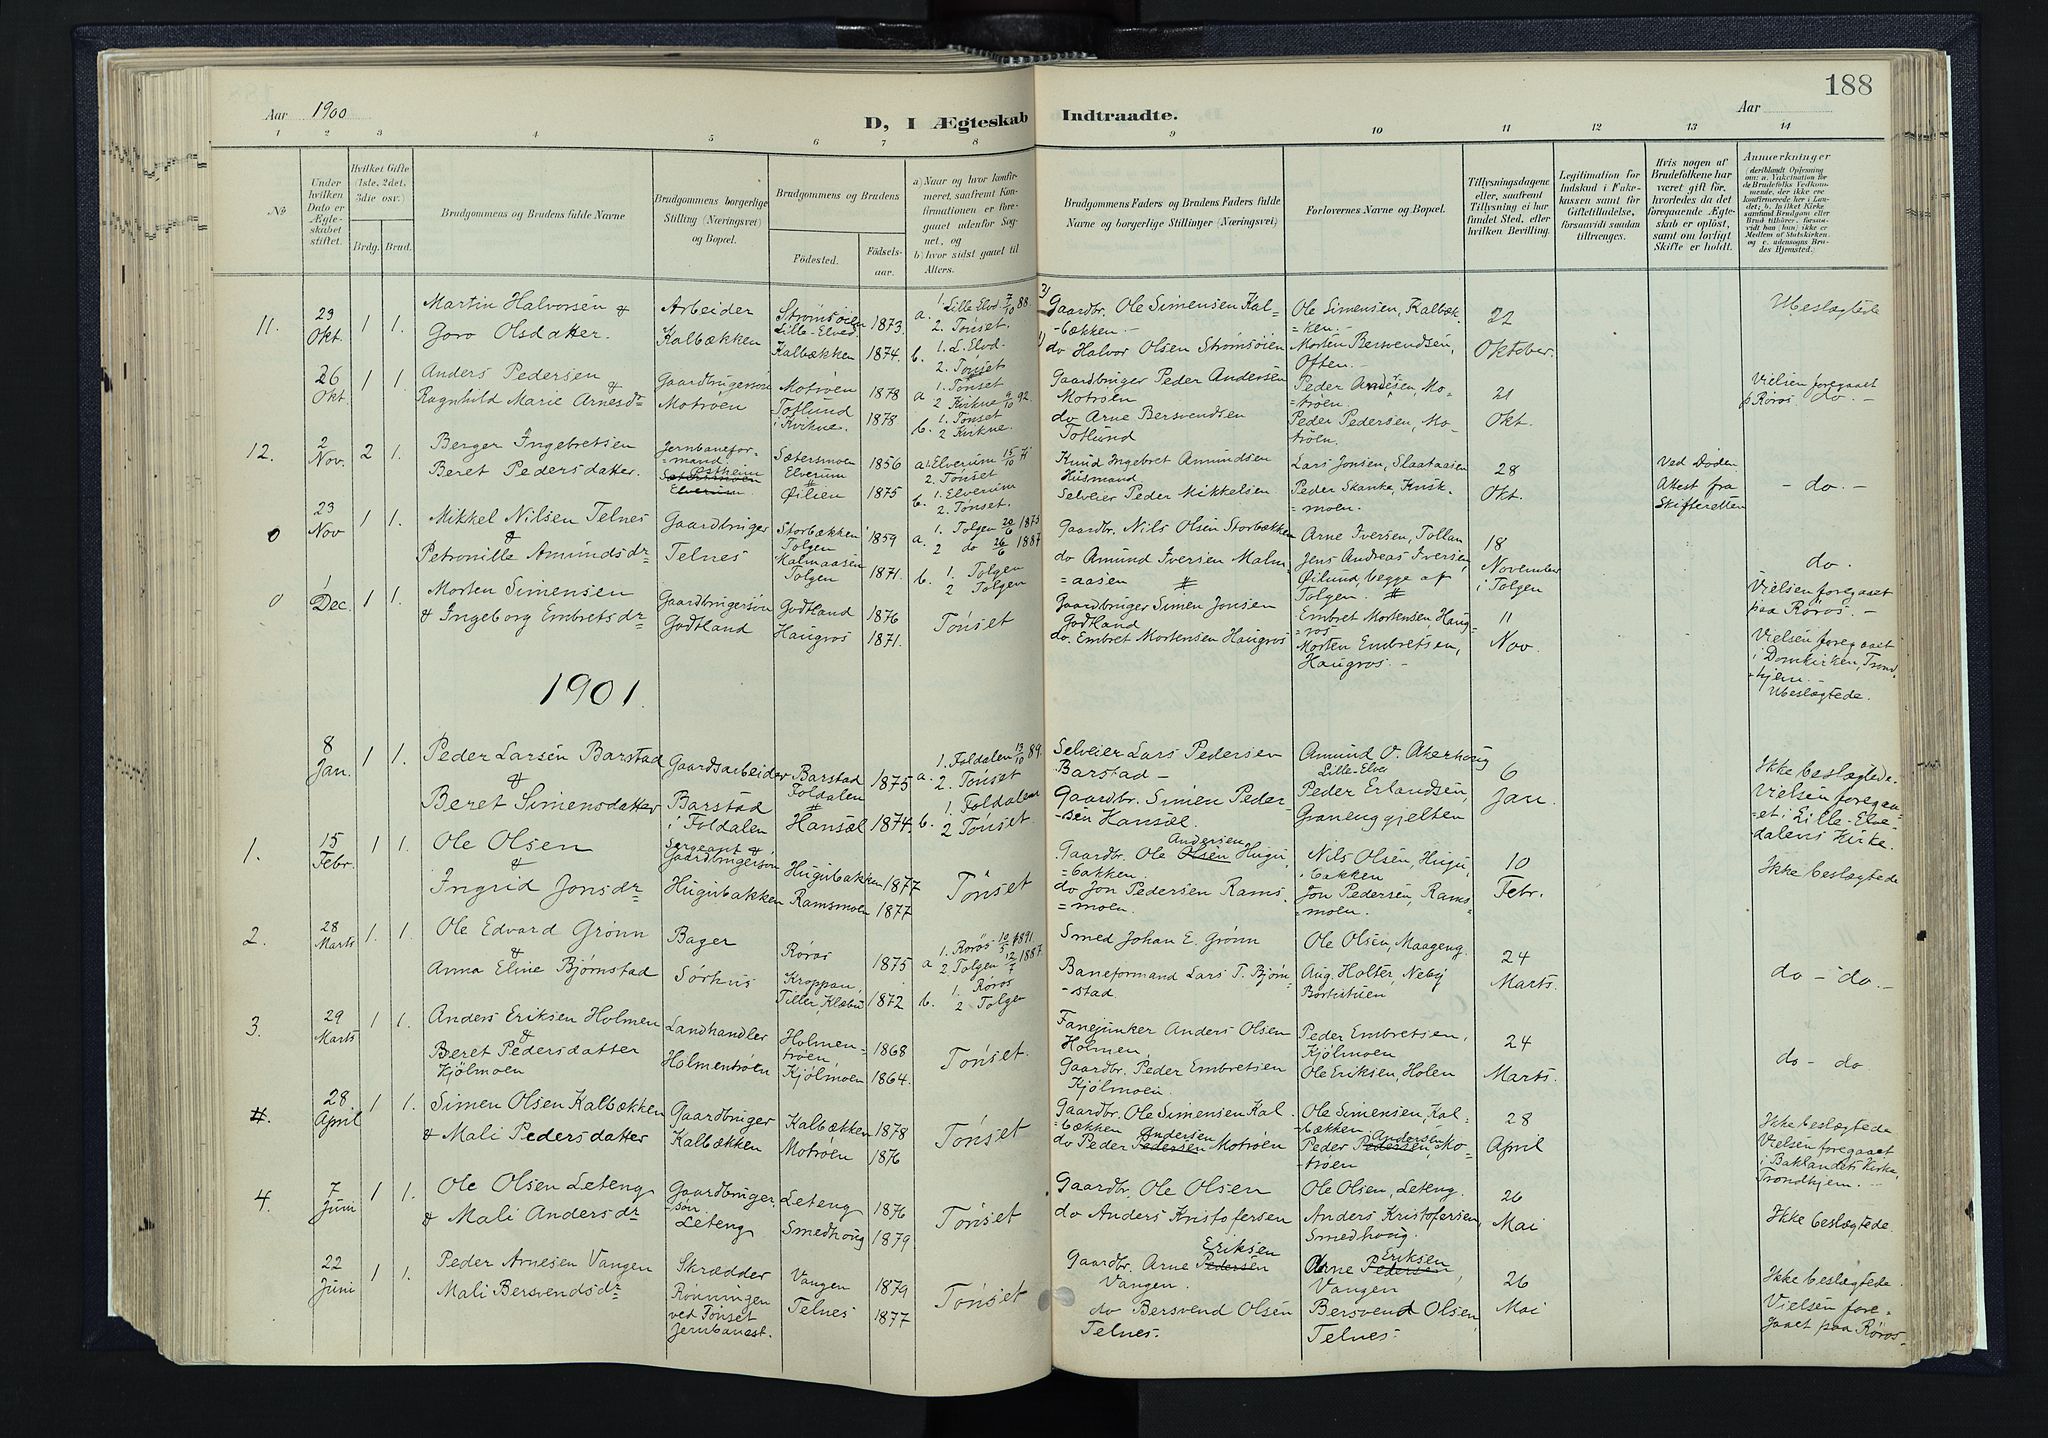 188
Aar 1900
D, I Ægteskab Indtraadte.
Aar
1 2 3 4 5 6 7 8 9 10 11 12 13 14
No
Under hvilken Dato er Ægteskabet stiftet.
Hvilket Gifte (1ste, 2det, 3die osv.)
Brdg. Brud.
Brudgommens og Brudens fulde Navne
Brudgommens borgerlige Stilling (Næringsvei) og Bopæl.
Brudgommens og Brudens
Fødested. Fødselsaar.
a) Naar og hvor konfirmeret, saafremt Konfirmationen er foregaaet udenfor Sognet, og
b) hvor sidst gaaet til Alters.
Brudgommens Faders og Brudens Faders fulde Navne og borgerlige Stillinger (Næringsvei)
Forlovernes Navne og Bopæl.
Tillysningsdagene eller, saafremt Tillysning ei har fundet Sted, efter hvilken Bevilling.
Legitimation for Indskud i Enkekassen samt for Giftetilladelse, forsaavidt saadan tiltrænges.
Hvis nogen af Brudefolkene har været gift før, hvorledes da det foregaaende Ægteskab er opløst, samt om lovligt Skifte er holdt.
Anmærkninger
11. 23 Okt. 1 1. Martin Halvorsen & Goro Olsdatter.
Arbeider Kalbækken
Strømsøien Lille-Elved. 1873.
Kalbækken 1874.
a. 1. Lille Elvd. 7/10 88. 2. Tønset.
b. 1. L. Elvd. 2. Tønset
Gaardbr. Ole Simensen Kal=bækken.-
do Halvor Olsen Strømsøien
Ole Simensen, Kalbæk=ken.-
Morten Bersvendsen, Often.-
22 Oktober.
Ubeslægtede
26 Okt. 1 1. Anders Pedersen & Ragnhild Marie Arnesdr
Gaardbrugersøn Motrøen
Motrøen 1878
Totlund i Kvikne. 1878
a 1. Tønset 2 Kvikne 9/10 92.
b. 1. Tønset 2 Kvikne.
Gaardbruger Peder Andersen Motrøen
do Arne Bersvendsen Totlund
Peder Andersen, Mo=trøen.
Peder Pedersen, Mo=trøen.
21 Okt.
Vielsen foregaaet p Røros do.-
12. 2 Nov. 2 1. Berger Ingebretsen Beret Pedersdatter.
Jernbanefor=mand Østheim Sætersmoen Elverum
Sætersmoen Elverum 1856
Øilien 1875
a 1. Elverum 15/10 71 2. Tønset
b. 1. Elverum 2. Tønset.
Knud Ingebret Amundsen Husmand
Selveier Peder Mikkelsen
Lars Jonsen, Slaataasen
Peder Skanke, Kusk=moen.
28 Okt.
Ved Døden Attest fra Skifteretten
- do. -
0 23 Nov 1 1. Mikkel Nilsen Telnes & Petronille Amundsdr
Gaardbruger Telnes
Storbækken Tolgen 1859
Kalmaasen Tolgen 1871.
a. 1. Tolgen 20/6 1875 2 do 26/6 1887
b. 1. Tolgen 2 Tolgen
Gaardbr. Nils Olsen Storbækken
do Amund Iversen Malm=aasen
Arne Iversen, Tollan
Jens Andreas Iversen, Øilund, begge af Tolgen.
18 November i Tolgen
do.
0 1 Dec. 1 1. Morten Simensen & Ingeborg Embretsdr
Gaardbrugersøn Godtland
Godtland 1876
Haugros 1871.
Tønset
Gaardbruger Simen Jonsen Godtland
do. Embret Mortensen Haugros
Embret Mortensen Haug=ros
Morten Embretsen, Haugros.-
11 Nov.
Vielsen foregaaet paa Røros.-
Vielsen foregaaet i Domkirken, Trond=hjem.-
Ubeslægtede.
1901.
8 Jan. 1 1. Peder Larsen Barstad & Beret Simensdatter
Gaardsarbeider Barstad i Foldalen
Barstad Foldalen 1875
Hansæl 1874.
a. 1. Foldalen 13/10 89. 2. Tønset
b. 1. Foldalen 2 Tønset.
Selveier Lars Pedersen Barstad-
Gaardbr. Simen Peder-sen Hansæl.
Amund O. Akerhoug Lille-Elve
Peder Erlandsen, Granenggjelten
6 Jan.
Ikke beslægtede. Vielsen foregaa=et i Lille-Elve=dalens Kirke.
1. 15 Febr. 1 1. Ole Olsen & Ingrid Jonsdr
Sergeant & Gaardbrugersøn Hugubakken
Hugubakken 1877
Ramsmoen 1877
Tønset
Gaardbr. Ole Olsen Andersen Hugu=bakken.
do Jon Pedersen Rams=moen.
Nils Olsen, Hugu=bakken
Jon Pedersen, Rams=moen.
10 Febr.
Ikke beslægtede
2. 28 Marts 1. 1. Ole Edvard Grønn & Anna Eline Bjørnstad
Bager Sørhus
Røros 1875
Kroppan, Tiller, Klæbu 1872
a 1. Røros 10/5 1891. 2. Tolgen 12/7 1887.
b. 1. Røros 2 Tolgen
Smed Johan E. Grønn
Baneformand Lars T. Bjørn-stad.
Ole Olsen, Maageng.
Aug. Holter, Neby Bortistuen
24 Marts.
do - do.-
3. 29 Marts 1 1. Anders Eriksen Holmen & Beret Pedersdatter Kjølmoen
Landhandler Holmentrøen
Holmen=trøen 1868
Kjølmoen 1864.
Tønset.
Fanejunker Anders Olsen Holmen,
Gaardbr. Peder Embretsen Kjølmoen.
Peder Embretsen, Kjølmoen
Ole Eriksen, Holen
24 Marts.
do - do.
#. 28 April 1 1. Simen Olsen Kalbækken & Mali Pedersdatter
Gaardbruger Kalbækken
Kalbækken 1878
Motrøen 1876
Tønset
Gaardbr. Ole Simensen Kal-bækken
do Peder Pedersen Andersen Motrøen
Ole Simensen, Kal=bækken.
Peder Pedersen Andersen, Mo=trøen
28 April
Ikke beslægtede Vielsen foregaaet i Baklandets Kirke, Trondhjem.-
4. 7 Juni 1 1. Ole Olsen Leteng & Mali Andersdr
Gaardbruger-søn Leteng
Leteng 1876
Smedhoug 1879
Tønset
Gaardbr. Ole Olsen
do Anders Kristofersen
Ole Olsen, Leteng.
Anders Kristofersen, Smedhoug.
26 Mai
Ikke beslægtede.
22 Juni 1 1. Peder Arnesen Vangen Mali Bersvendsdr
Skrædder Rønningen ved Tønset Jernbanest.
Vangen 1879
Telnes 1877
Tønset
Gaardbr. Arne Pedersen Eriksen Vangen.
do Bersvend Olsen Telnes.
Arne Pedersen Eriksen, Vangen
Bersvend Olsen, Telnes.
26 Mai
Ikke beslægtede. Vielsen fore=gaaet paa Røros